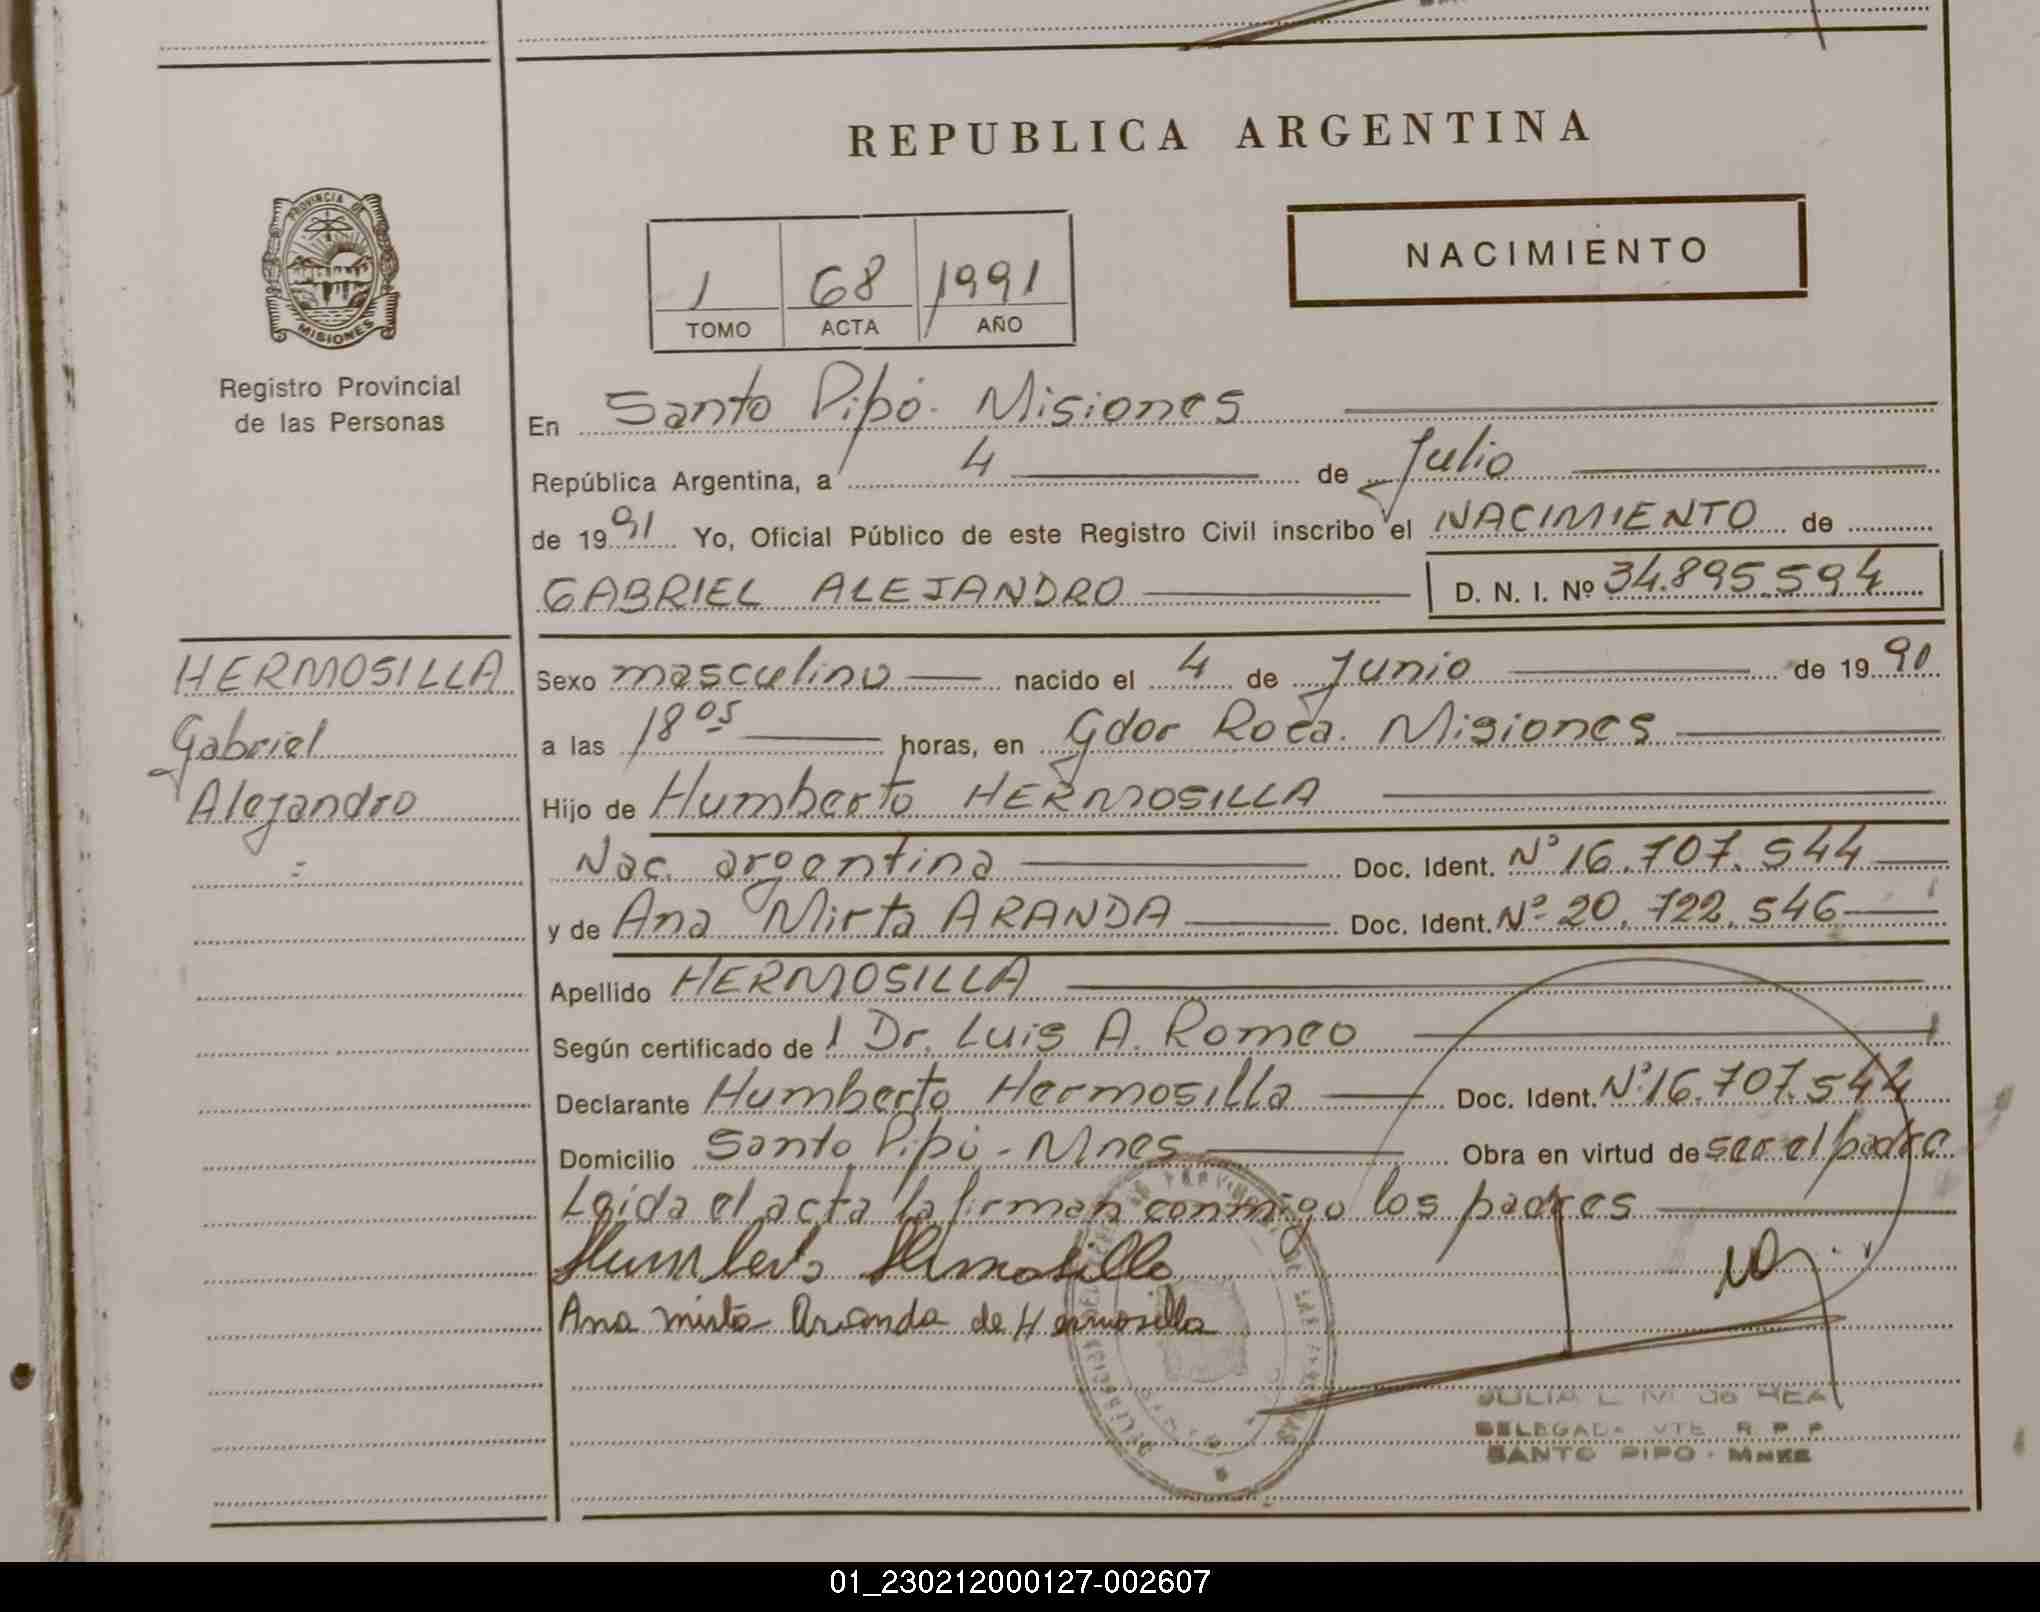 REPUBLICA ARGENTINA
PROVINCIA DE
MISIONES
Registro Provincial
de las Personas
NACIMIENTO
1 68 1991
TOMO ACTA AÑO
En Santo Pipó. Misiones
República Argentina, a 4 de Julio
de 1991 Yo, Oficial Público de este Registro Civil inscribo el NACIMIENTO de
GABRIEL ALEJANDRO D. N. I. Nº 34.895.594
HERMOSILLA
Gabriel
Alejandro
Sexo masculino nacido el 4 de Junio de 1990
a las 18 05 horas, en Gdor Roca. Misiones
Hijo de Humberto HERMOSILLA
Nac. argentina Doc. Ident. Nº 16.707.544
y de Ana Mirta ARANDA Doc. Ident. Nº 20.722.546
Apellido HERMOSILLA
Según certificado de 1 Dr. Luis A. Romeo
Declarante Humberto Hermosilla Doc. Ident. Nº 16.707.544
Domicilio Santo Pipó - Mnes Obra en virtud de ser el padre
Leída el acta la firman conmigo los padres
Humberto Hermosilla
Ana mirta Aranda de Hermosilla
JULIA L. M. de REA
DELEGADA VTE R P P
SANTO PIPO - MNES
01_230212000127-002607